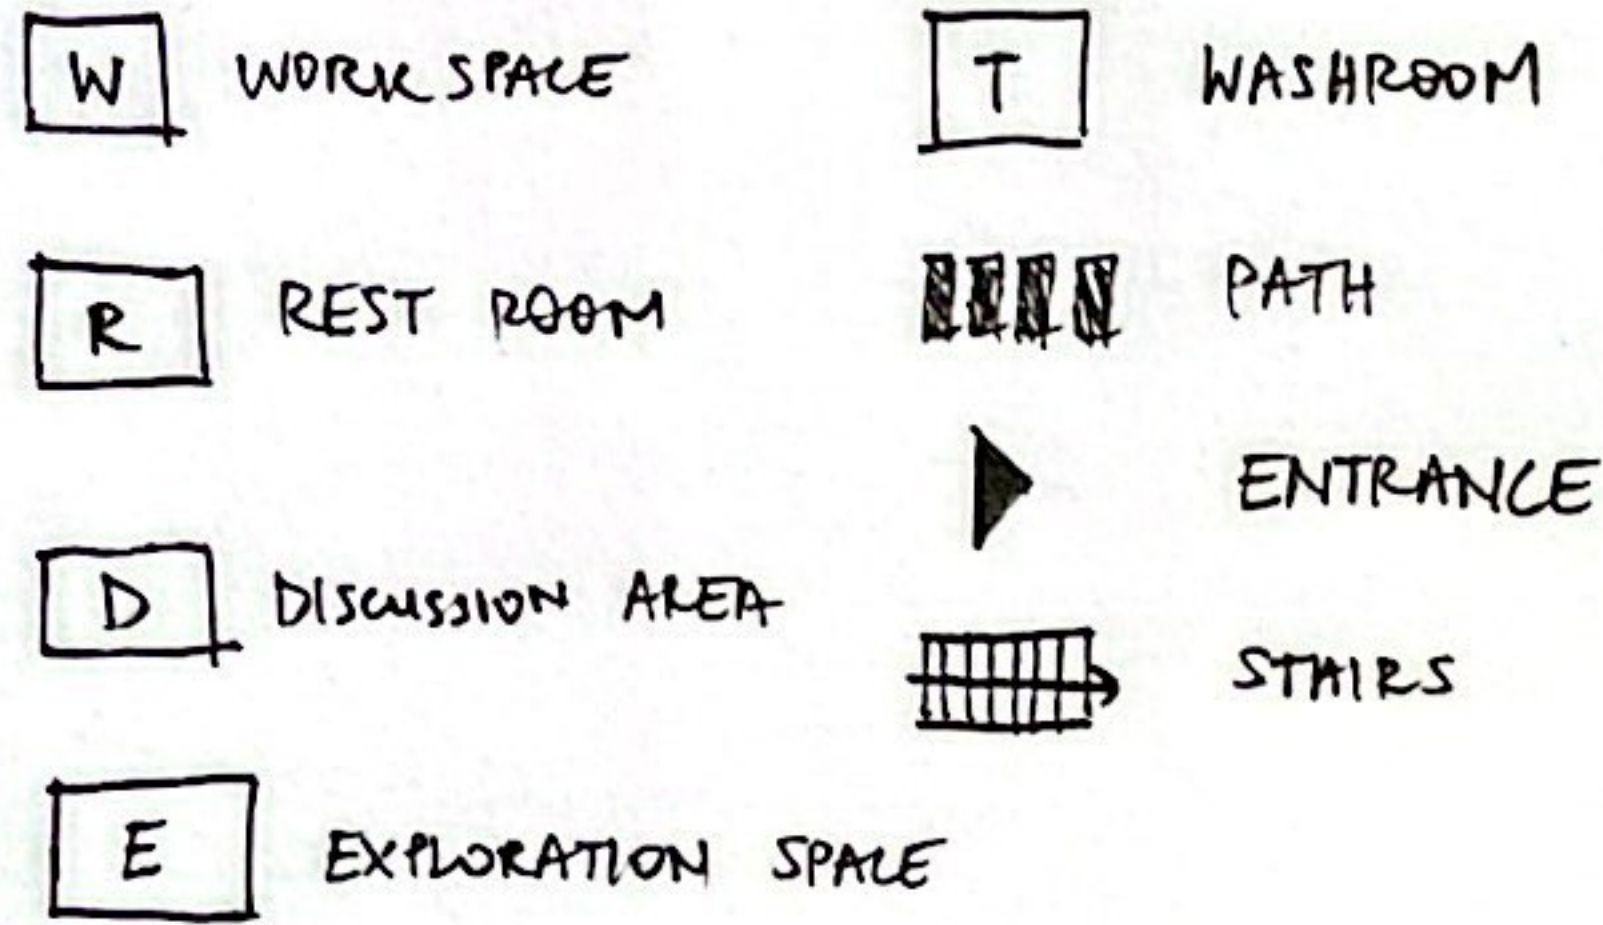 W WORK SPACE
R REST ROOM
D DISCUSSION AREA
E EXPLORATION SPACE
T WASHROOM
PATH
ENTRANCE
STAIRS